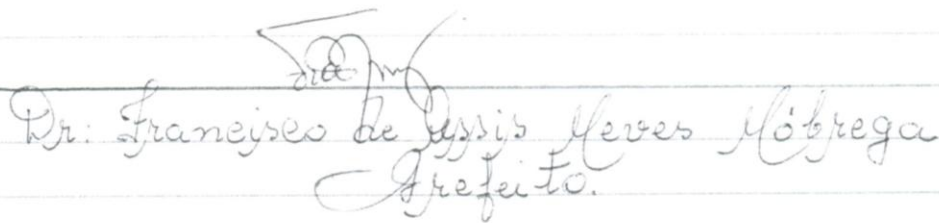 Dr: Francisco de Assis Neves Nóbrega
Prefeito.